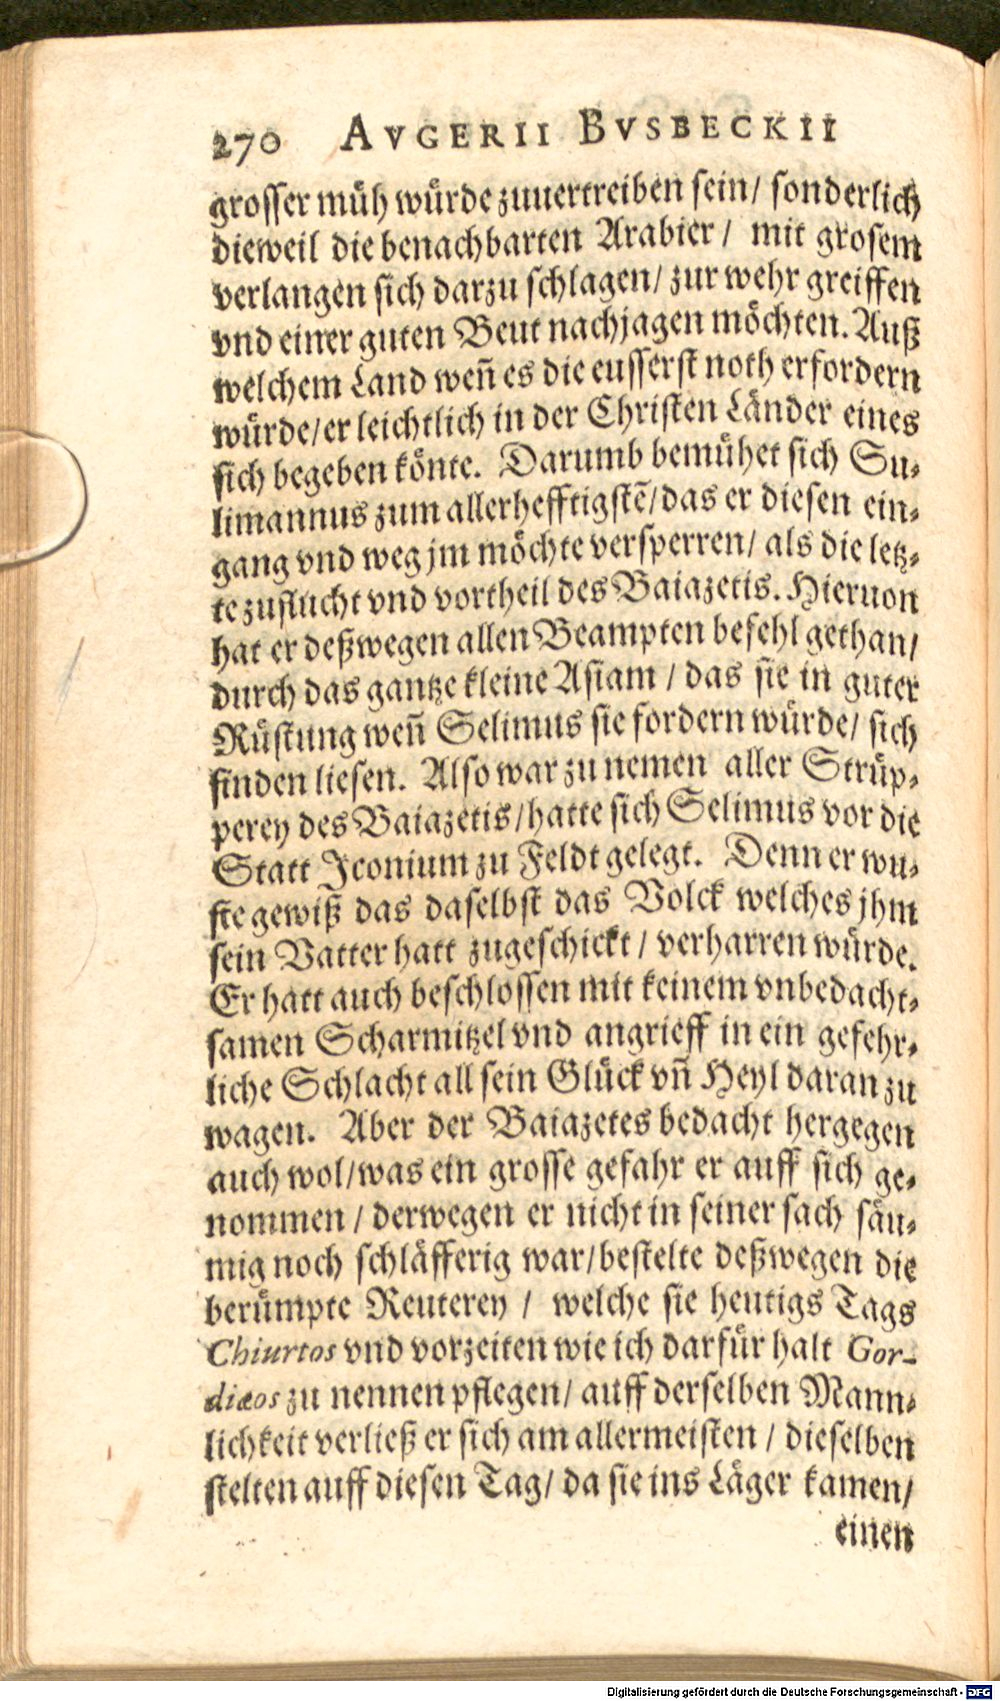 270 AVGERII BVSBECKII
grosser müh würde zuuertreiben sein/ sonderlich
dieweil die benachbarten Arabier/ mit grosem
verlangen sich darzu schlagen/ zur wehr greiffen
vnd einer guten Beut nachjagen möchten. Auß
welchem Land weñ es die eusserst noth erfordern
würde/ er leichtlich in der Christen Länder eines
sich begeben könte. Darumb bemühet sich Su-
limannus zum allerhefftigstẽ/ das er diesen ein-
gang vnd weg jm möchte versperren/ als die letz-
te zuflucht vnd vortheil des Baiazetis. Hieruon
hat er deßwegen allen Beampten befehl gethan/
durch das gantze kleine Asiam / das sie in guter
Rüstung weñ Selimus sie fordern würde/ sich
finden liesen. Also war zu nemen aller Strüp-
perey des Baiazetis/ hatte sich Selimus vor die
Statt Iconium zu Feldt gelegt. Denn er wu-
ste gewiß das daselbst das Volck welches jhm
sein Vatter hatt zugeschickt/ verharren würde.
Er hatt auch beschlossen mit keinem vnbedacht-
samen Scharmitzel vnd angrieff in ein gefehr-
liche Schlacht all sein Glück vñ Heyl daran zu
wagen. Aber der Baiazetes bedacht hergegen
auch wol/ was ein grosse gefahr er auff sich ge-
nommen / derwegen er nicht in seiner sach säu-
mig noch schläfferig war/ bestelte deßwegen die
berümpte Reuterey / welche sie heutigs Tags
Chiurtos vnd vorzeiten wie ich darfür halt Gor-
diæos zu nennen pflegen/ auff derselben Mann-
lichkeit verließ er sich am allermeisten / dieselben
stelten auff diesen Tag/ da sie ins Läger kamen/
einen
Digitalisierung gefördert durch die Deutsche Forschungsgemeinschaft - DFG